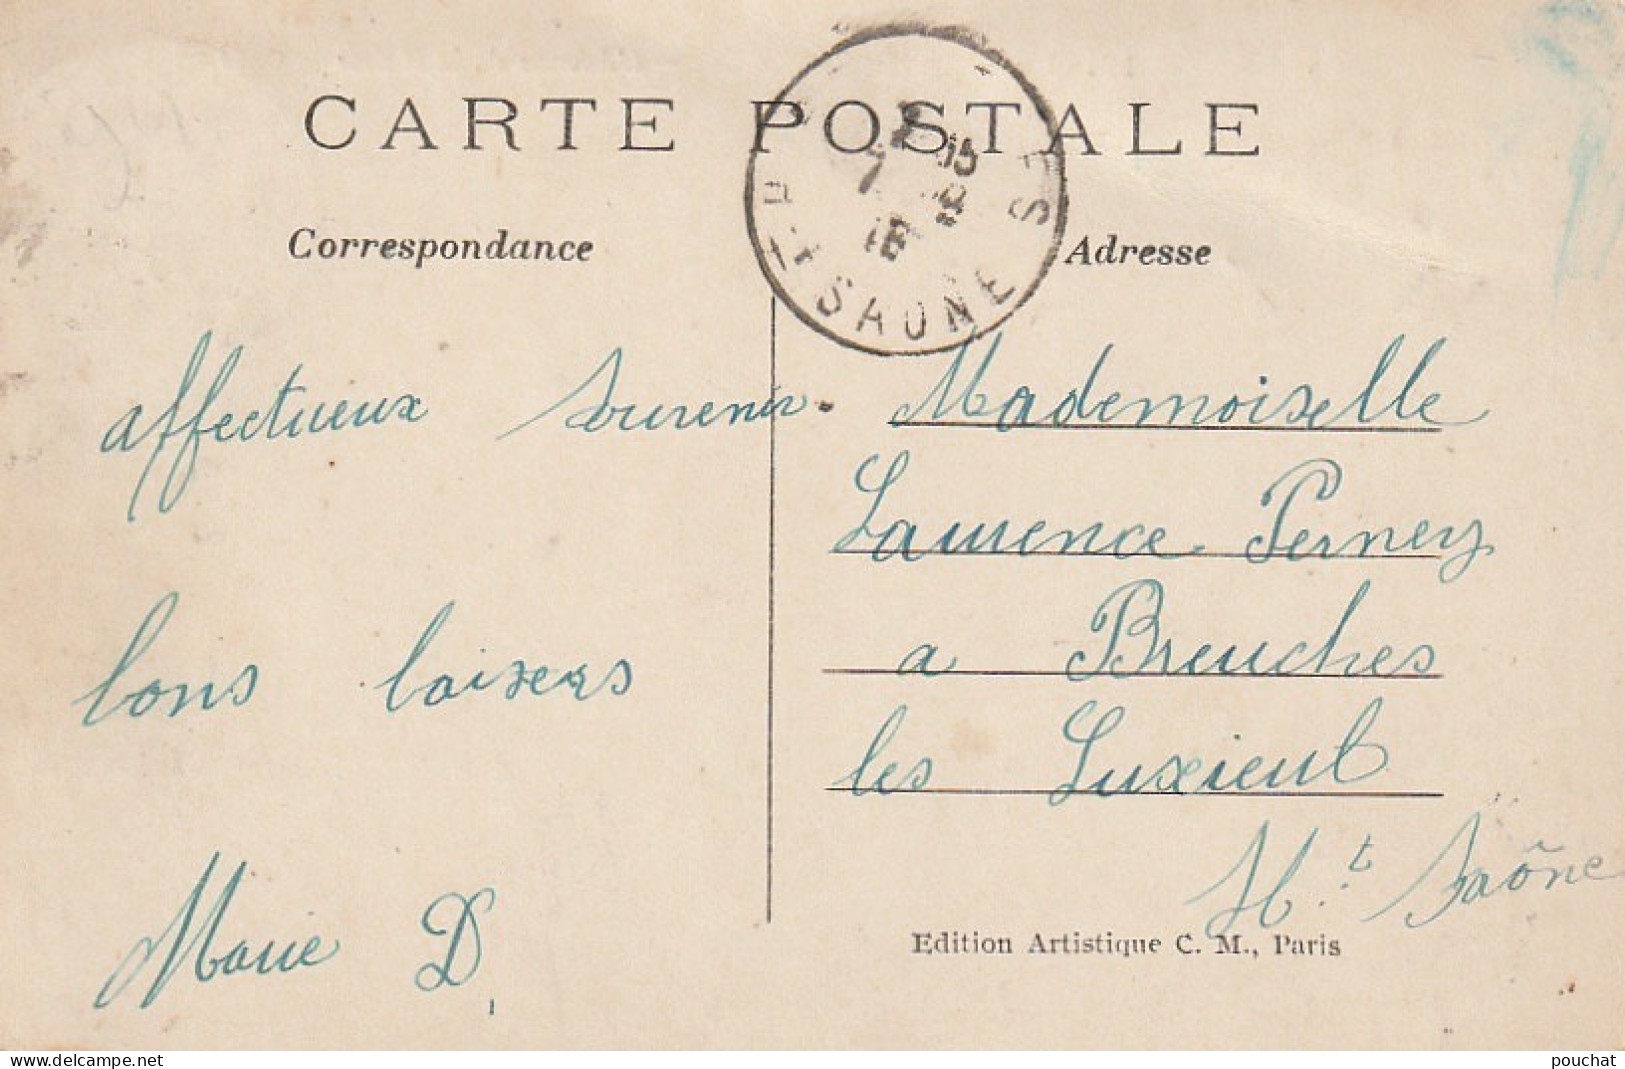 CARTE POSTALE
Correspondance
Adresse
Hte SAONE
affectueux souvenir
bons baisers
Marie D,
Mademoiselle
Laurence Perney
a Breuches
les Luxieul
Ht Saône
Edition Artistique C. M., Paris
www.delcampe.net
pouchat